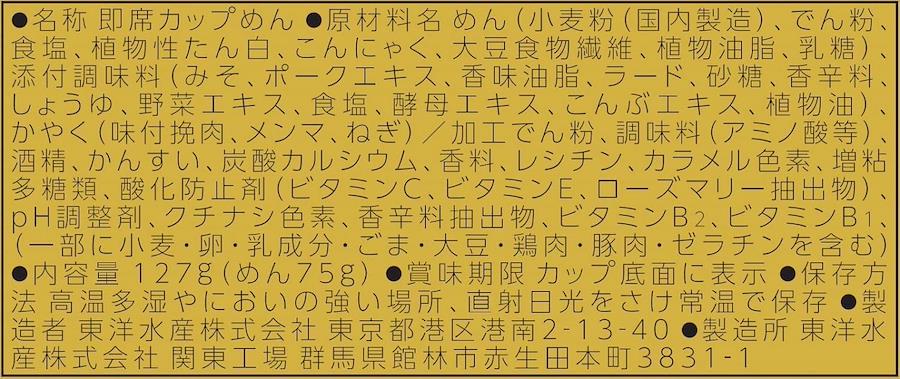 ●名称 即席カップめん ●原材料名 めん(小麦粉(国内製造)、でん粉、
食塩、植物性たん白、こんにゃく、大豆食物繊維、植物油脂、乳糖)、
添付調味料(みそ、ポークエキス、香味油脂、ラード、砂糖、香辛料、
しょうゆ、野菜エキス、食塩、酵母エキス、こんぶエキス、植物油)、
かやく(味付挽肉、メンマ、ねぎ)／加工でん粉、調味料(アミノ酸等)、
酒精、かんすい、炭酸カルシウム、香料、レシチン、カラメル色素、増粘
多糖類、酸化防止剤(ビタミンC、ビタミンE、ローズマリー抽出物)、
pH調整剤、クチナシ色素、香辛料抽出物、ビタミンB₂、ビタミンB₁、
(一部に小麦・卵・乳成分・ごま・大豆・鶏肉・豚肉・ゼラチンを含む)
●内容量 127g(めん75g) ●賞味期限 カップ底面に表示 ●保存方
法 高温多湿やにおいの強い場所、直射日光をさけ常温で保存 ●製
造者 東洋水産株式会社 東京都港区港南2-13-40 ●製造所 東洋水
産株式会社 関東工場 群馬県館林市赤生田本町3831-1